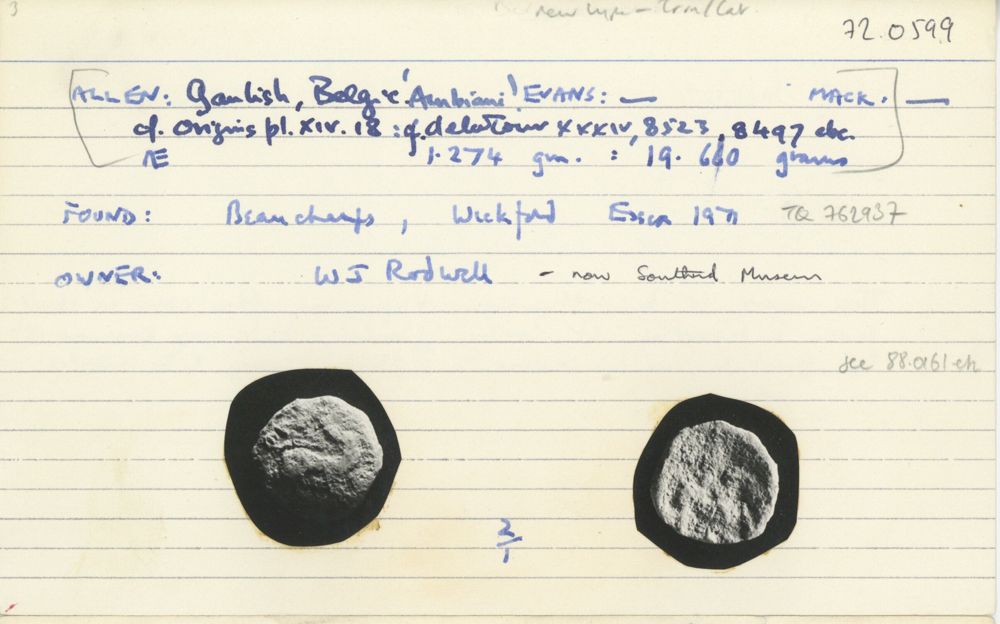 3 new type - Trin/Cat.
72.0599
ALLEN: Gaulish, Belgic 'Ambiani' EVANS: — MACK. —
cf. Origins pl. XIV. 18 : cf. de la Tour XXXIV, 8523, 8497 etc.
Æ 1.274 gm. : 19.660 grains
FOUND: Beauchamps, Wickford Essex 1971 TQ 762937
OWNER: W J Rodwell - now Southend Museum
see 88.0161 etc
2/1